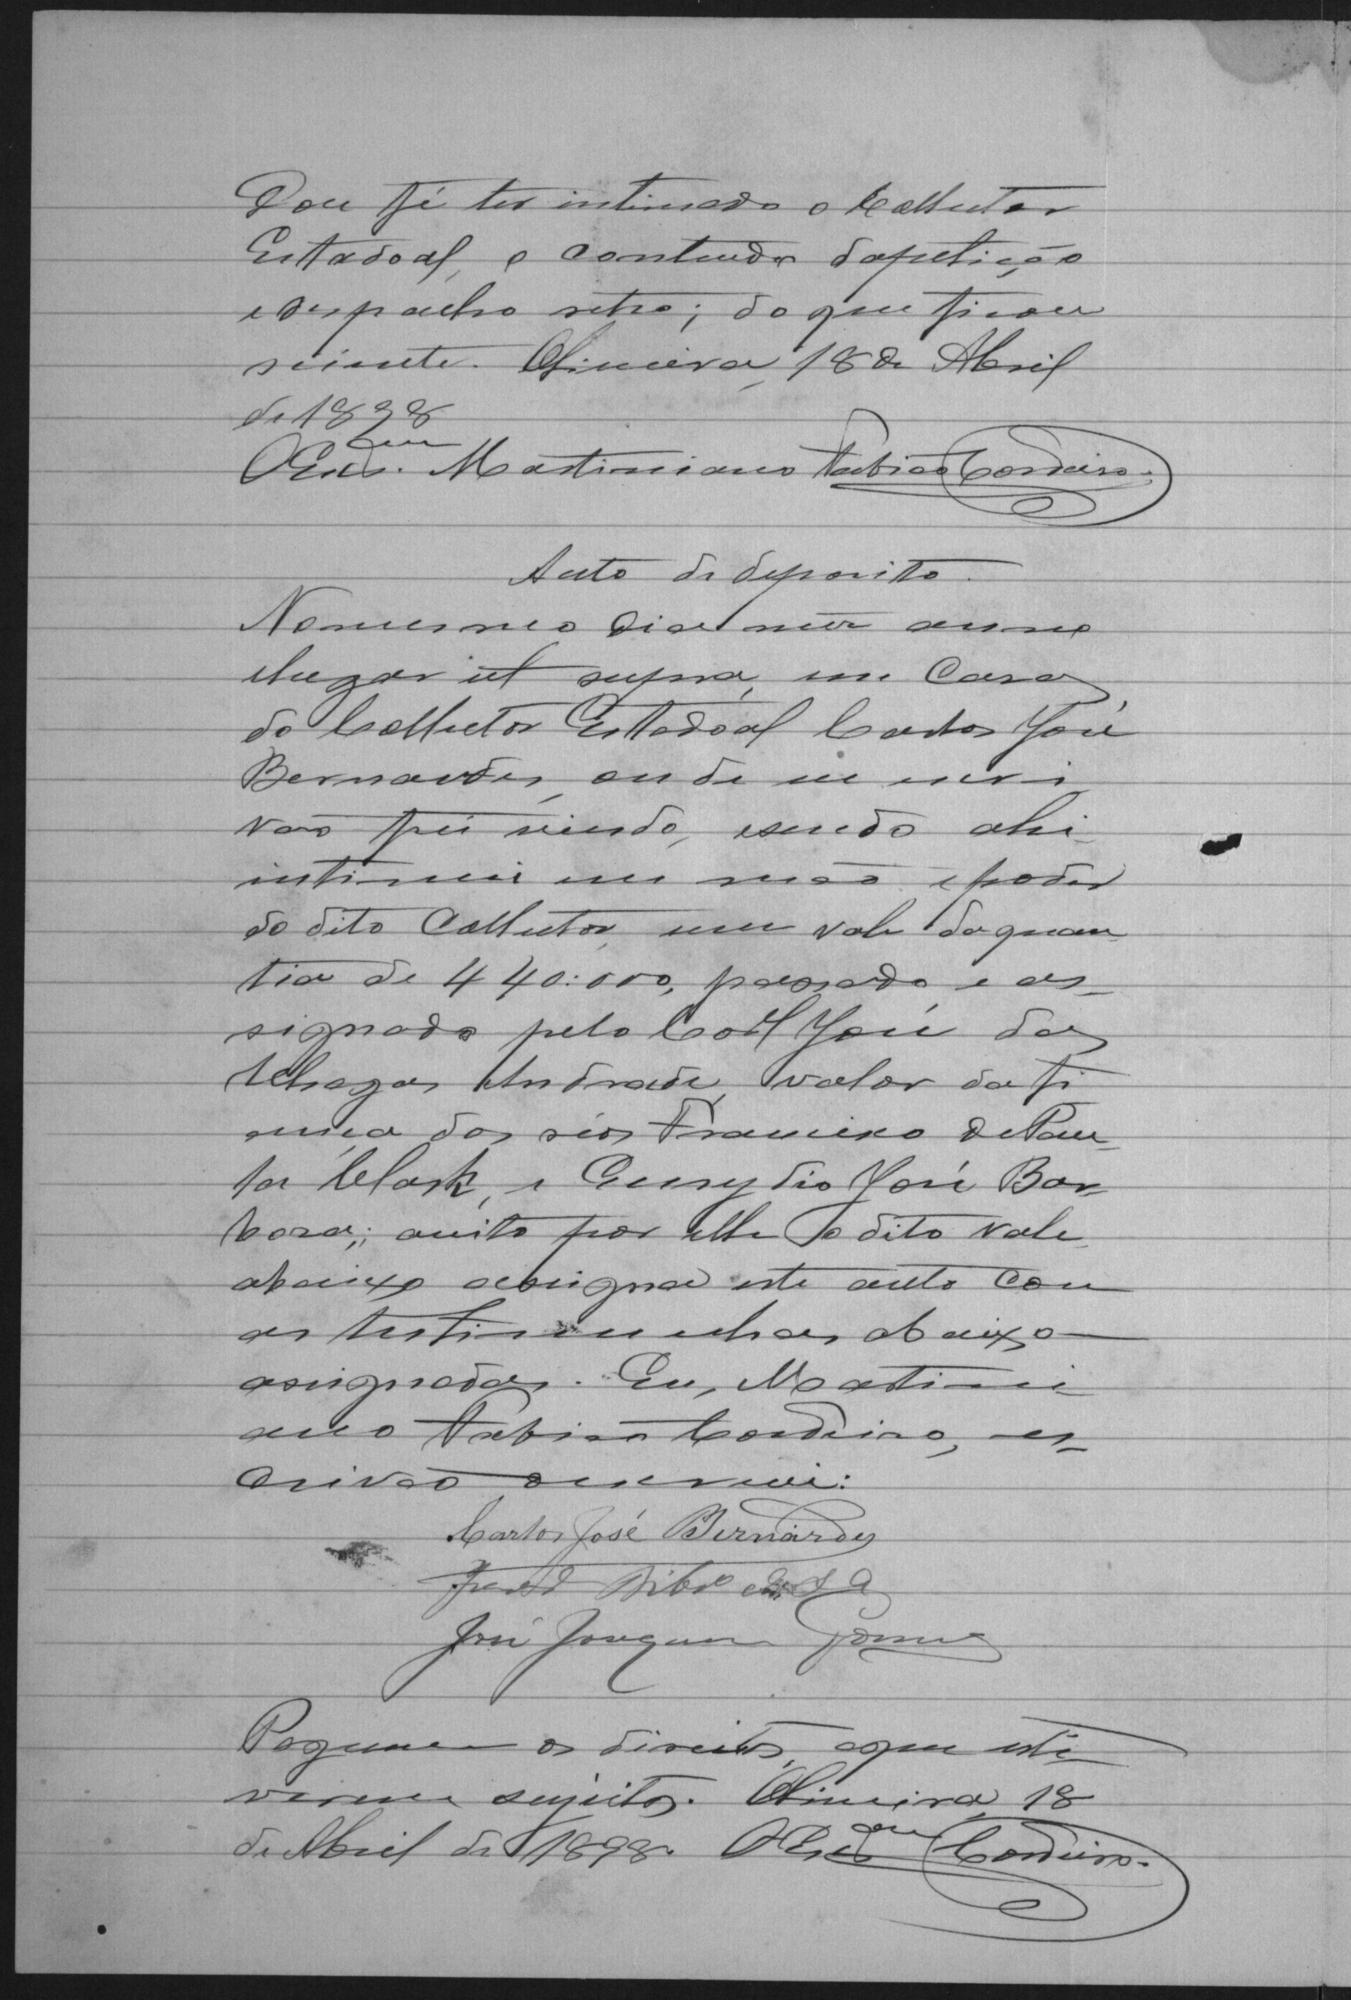 Dou fé ter intimado o Collector
Estadoal, o contendo da petição
e despacho retro; do que ficou
sciente. Oliveira, 18 de Abril
de 1898
O Escr.am Martiniano Fabião Cordeiro.
Auto de deposito.
No mesmo dia mez anno
e lugar ut supra, em Casa
do Collector Estadoal Carlos José
Bernardes, onde eu escri
vão fui vindo, e sendo ahi
intimei em mão e poder
do dito Collector, um vale da quan
tia de 440:000, passado e as-
signado pelo Coel José das
Chagas Andrade, valor da fi
ança dos réos Francisco de Pau-
la Clark, e Emydio José Bar-
bosa; aceito por elle o dito vale
abaixo assigna este auto com
as testimunhas abaixo
assignadas. Eu, Martini
ano Fabião Cordeiro, es-
crivão o escrevi:
Carlos José Bernardes
José Joaquim Gomes
Paguem os direitos, a que esti-
verem sujeitos. Oliveira, 18
de Abril de 1898. O Escr.am Cordeiro.